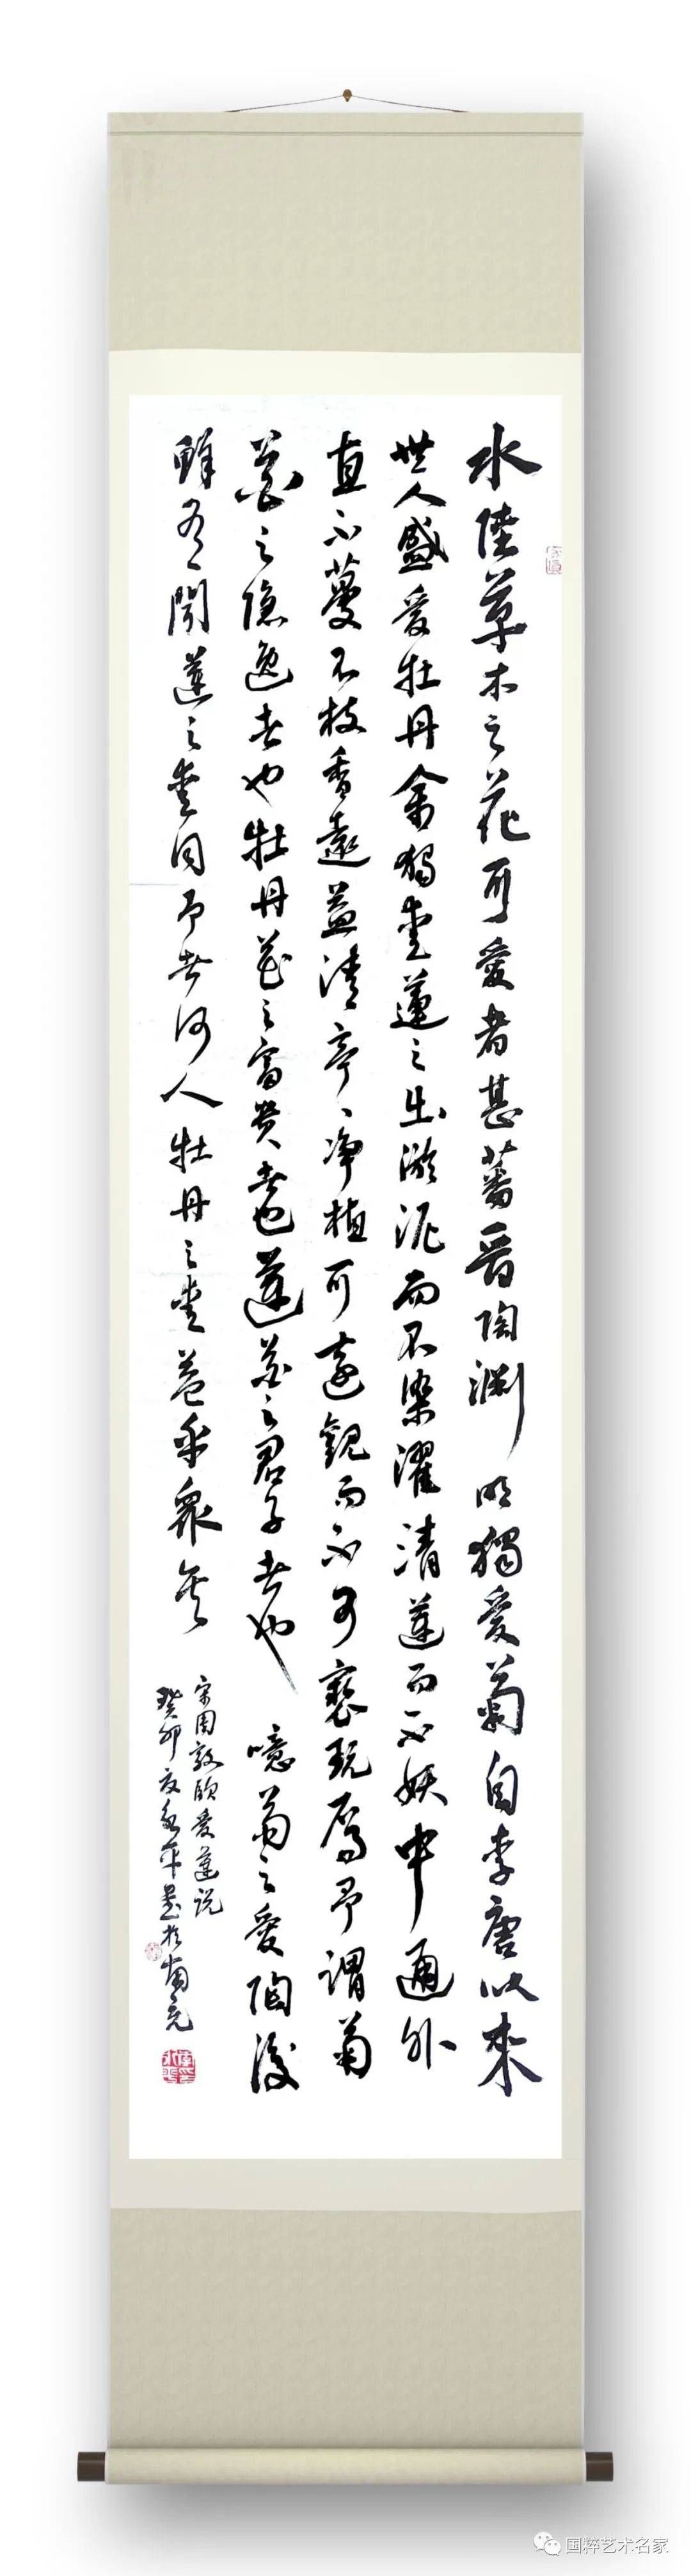 水陸草木之花可愛者甚蕃晉陶淵明獨愛菊自李唐以來
世人盛愛牡丹余獨愛蓮之出淤泥而不染濯清蓮而不妖中通外
直不蔓不枝香遠益清亭、淨植可遠觀而不可褻玩焉予謂菊
花之隱逸者也牡丹花之富貴者也蓮花之君子者也噫菊之愛陶後
鮮有聞蓮之愛同予者何人牡丹之愛益乎眾矣
宋周敦頤愛蓮说
癸卯夏永平書於南充
国粹艺术名家